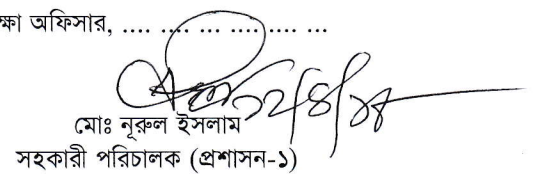 ক্ষা অফিসার, .... .... ... .... .... ...
১২/৪/১৮
মোঃ নূরুল ইসলাম
সহকারী পরিচালক (প্রশাসন-১)